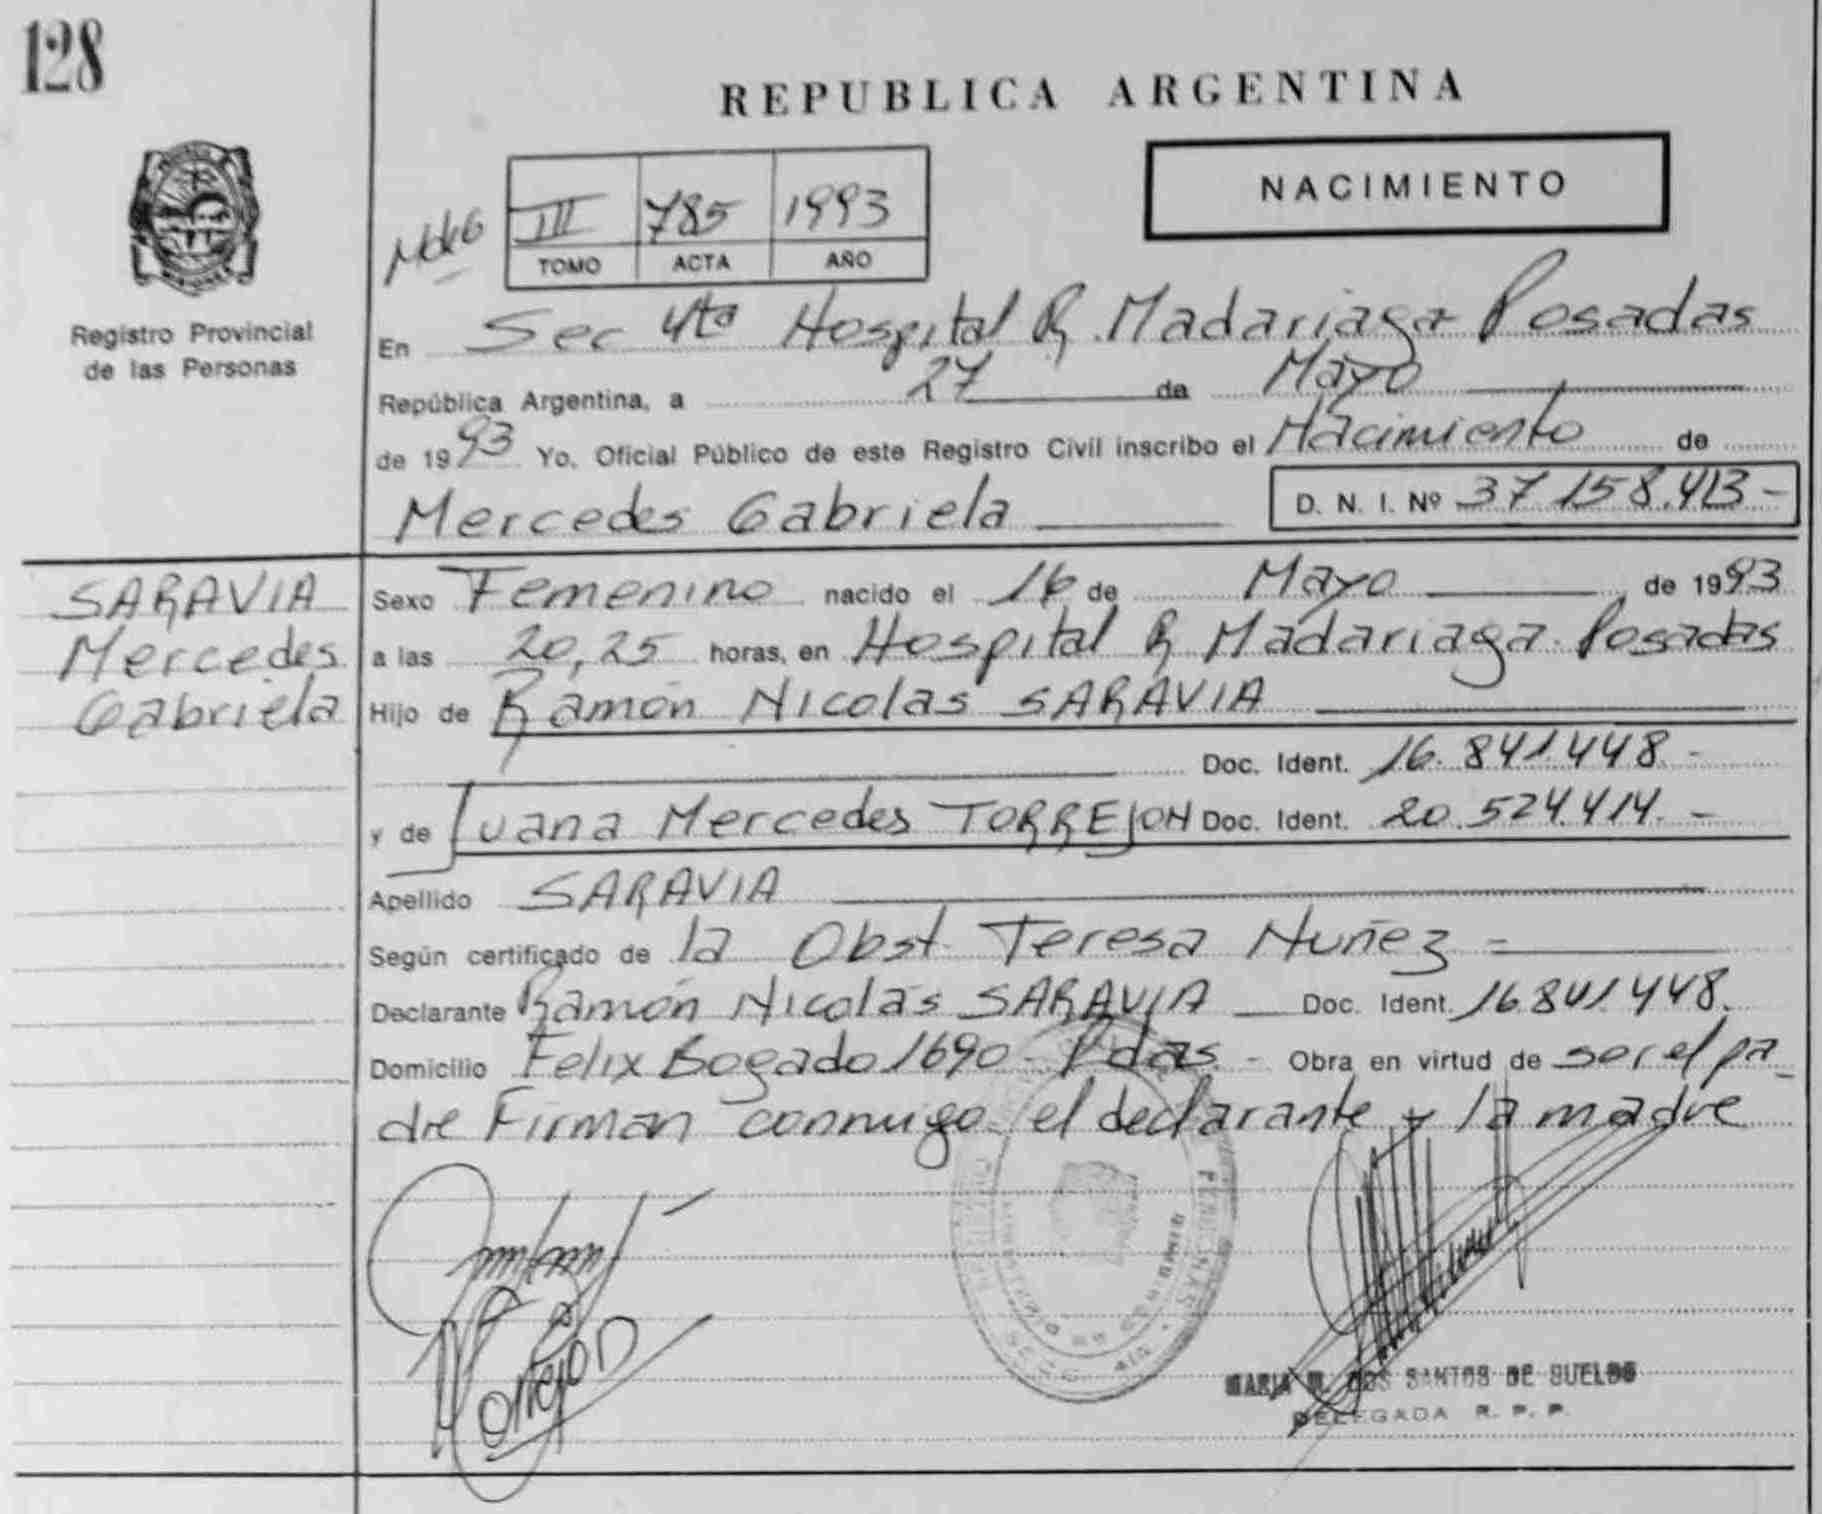 128
REPUBLICA ARGENTINA
NACIMIENTO
III 785 1993
TOMO ACTA AÑO
Registro Provincial
de las Personas
En Sec 4ta Hospital R. Madariaga Posadas
República Argentina, a 27 de Mayo
de 1993 Yo, Oficial Público de este Registro Civil inscribo el Nacimiento de
Mercedes Gabriela D. N. I. Nº 37 158.413-
SARAVIA
Mercedes
Gabriela
Sexo Femenino nacido el 16 de Mayo de 1993
a las 20,25 horas, en Hospital R Madariaga. Posadas
Hijo de Ramón Nicolas SARAVIA
Doc. Ident. 16.841.448.-
y de Juana Mercedes TORREJON Doc. Ident. 20.524.414.-
Apellido SARAVIA
Según certificado de la Obst. Teresa Nuñez -
Declarante Ramón Nicolás SARAVIA Doc. Ident. 16.841.448.
Domicilio Felix Bogado 1690 - Pdas. - Obra en virtud de ser el pa_
dre Firman conmigo el declarante y la madre
MARIA DOS SANTOS DE BUELOS
DELEGADA R. P. P.